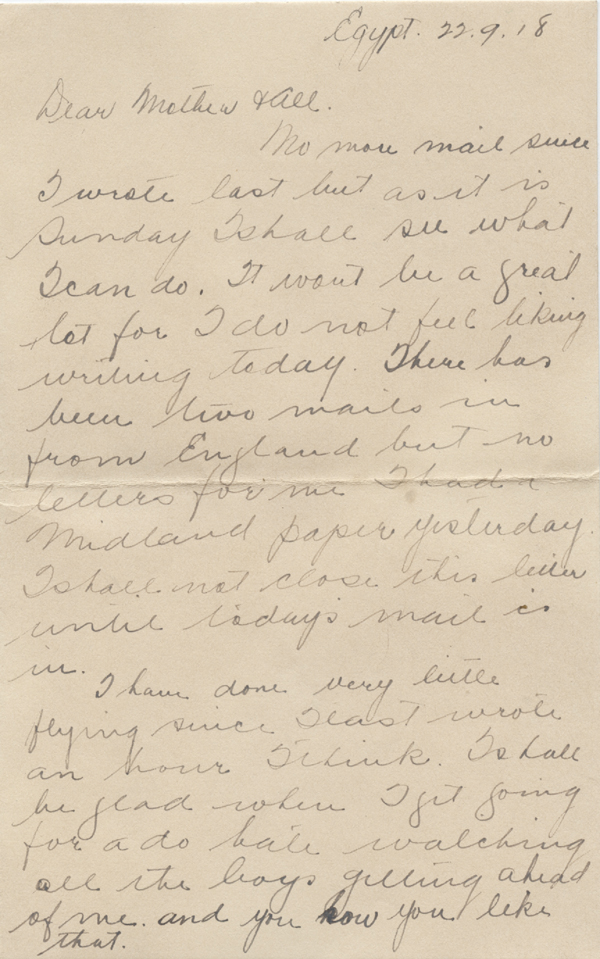 Egypt. 22.9.18
Dear Mother & All.
No more mail since
I wrote last but as it is
Sunday I shall see what
I can do. It wont be a great
lot for I do not feel liking
writing today. There has
been two mails in
from England but no
letters for me I had a
Midland paper yesterday.
I shall not close this letter
until today's mail is
in.
I have done very little
flying since I last wrote
an hour I think. I shall
be glad when I get going
for a do hate watching
all the boys getting ahead
of me. and you how you like
that.